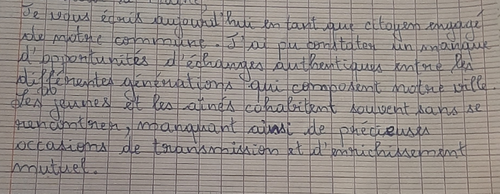 Je vous écris aujourd'hui en tant que citoyen engagé
de notre commune. J'ai pu constater un manque
d'opportunités d'échanges authentiques entre les
différentes générations qui composent notre ville.
Les jeunes et les aînés cohabitent souvent sans se
rencontrer, manquant ainsi de précieuses
occasions de transmission et d'enrichissement
mutuel.